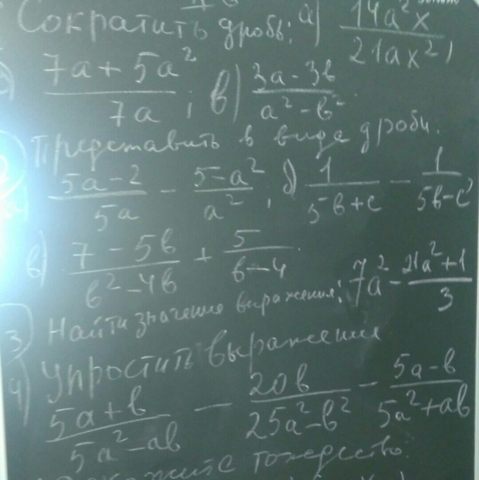 Сократить дробь: а) 14a²x / 21ax²
7a + 5a² / 7a ; в) 3a - 3в / a² - в²
Представить в вида дроби.
5a - 2 / 5a - 5 - a² / a² ; 1 / 5в + c - 1 / 5в - c
в) 7 - 5в / в² - 4в + 5 / в - 4
3 Найти значение выражения: 7a² - 21a² + 1 / 3
4) Упростить выражения.
5a + в / 5a² - aв - 20в / 25a² - в² - 5a - в / 5a² + aв
тождество